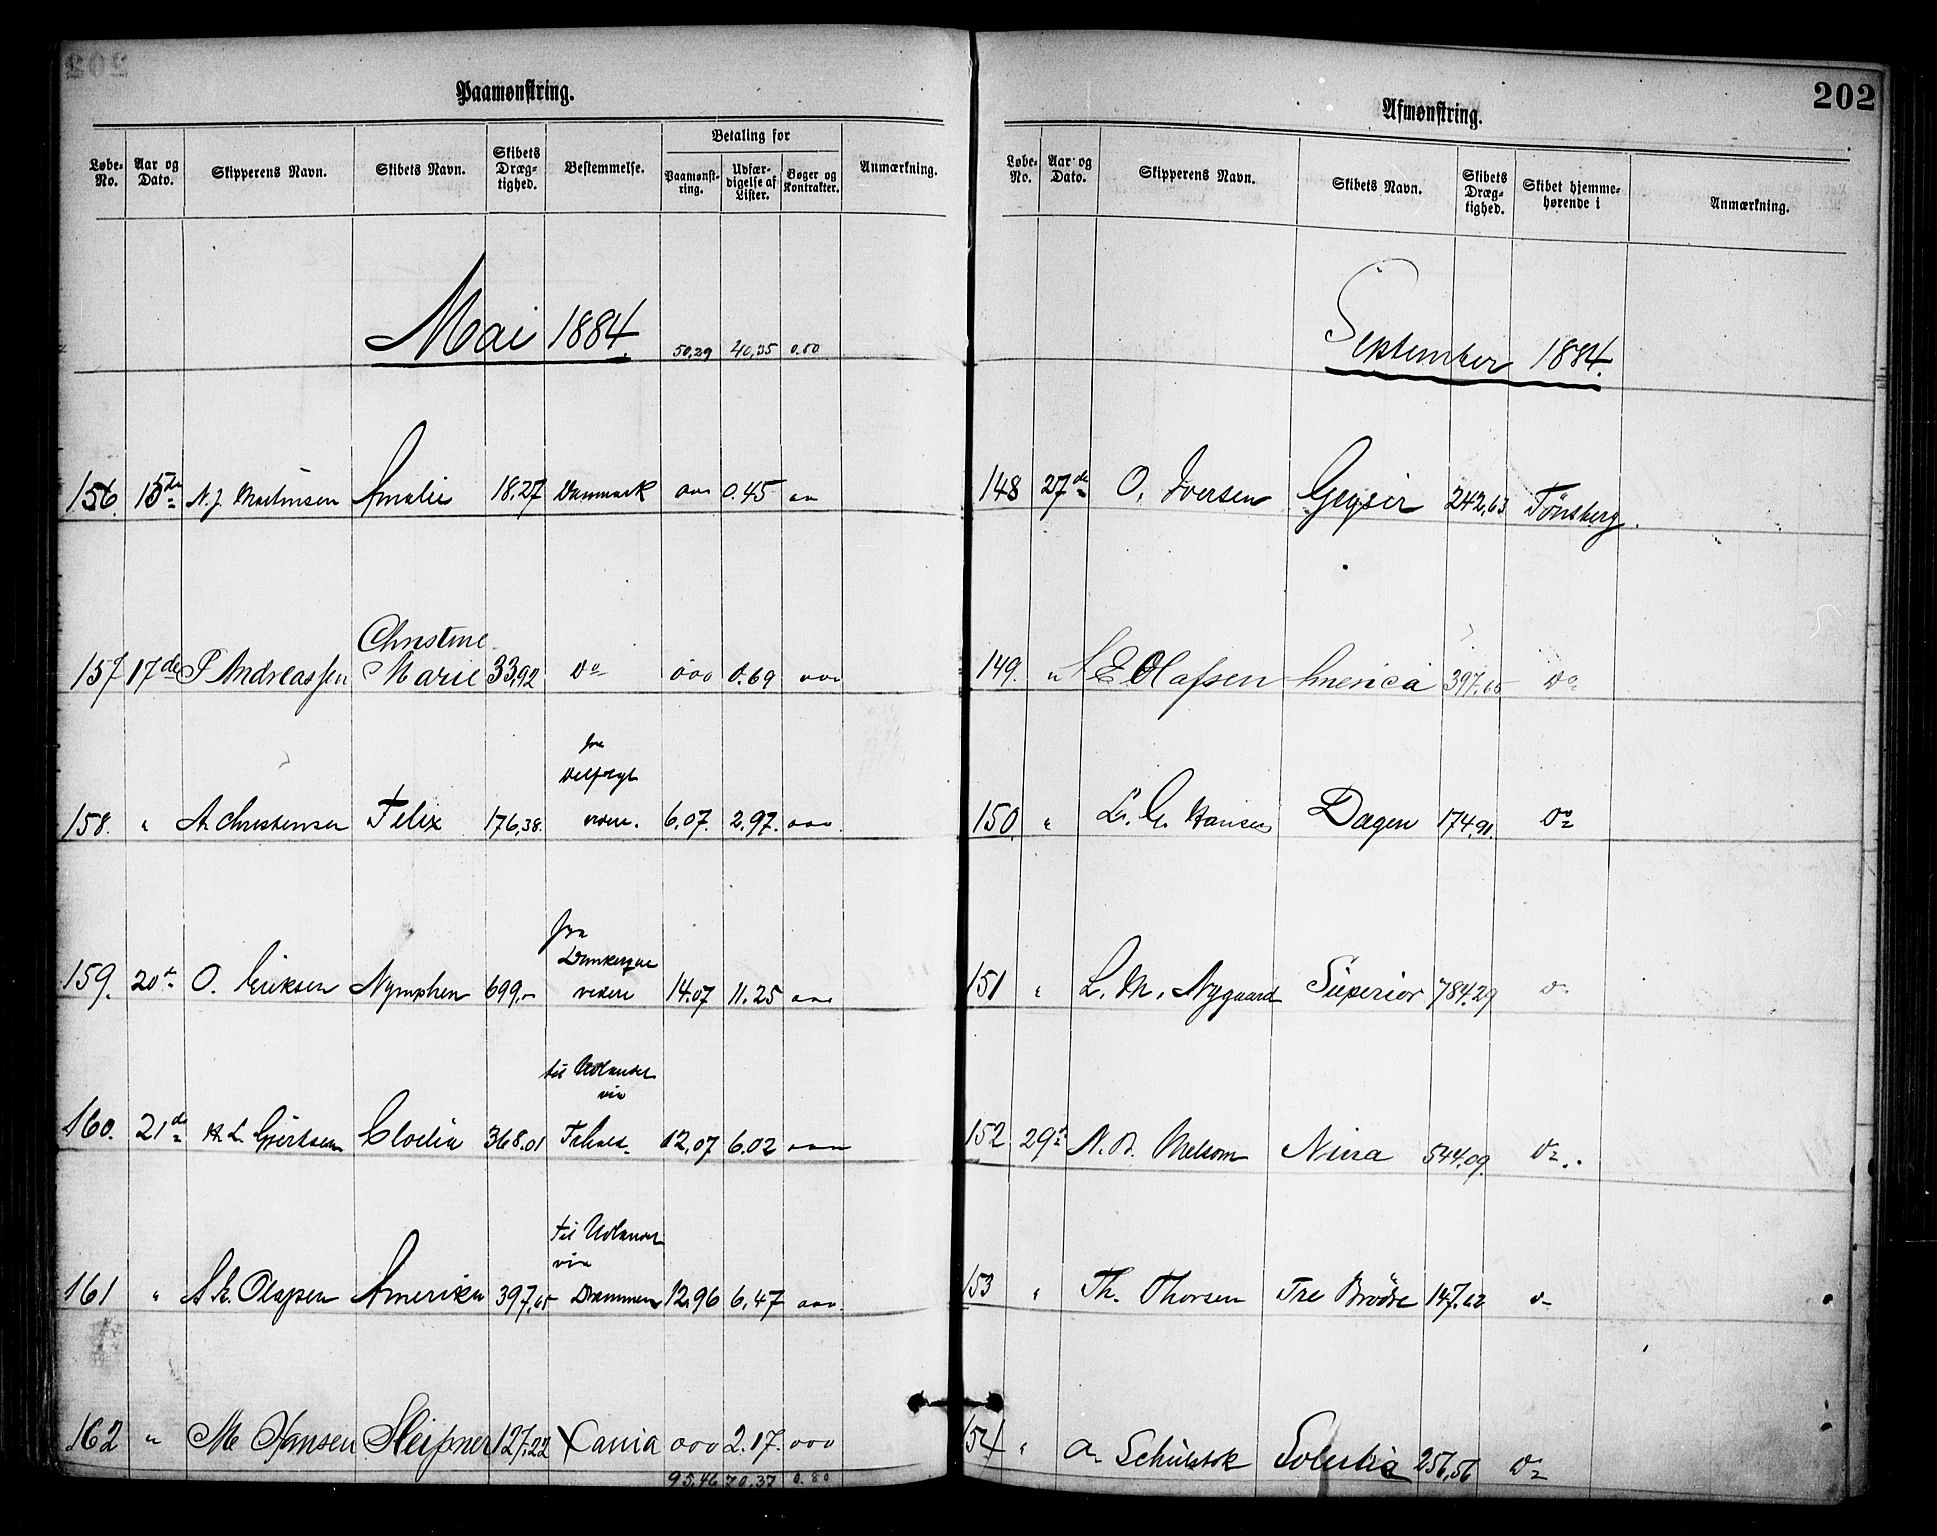 Paamønstring.
Løbe-No. Aar og Dato. Skipperens Navn. Skibets Navn. Skibets Dræg-tighed. Bestemmelse. Betaling for Anmærkning.
Paamønst-ring. Udfær-digelse af Lister. Bøger og Kontrakter.
Mai 1884. 50,29 40,35 0.80
156. 15de N. J. Mathisen Amalie 18.27 Danmark ooo 0.45 ooo
Christine
157 17de P Andreassen Marie 33,92 Do ooo 0.69 ooo
fra
Delfzyl
158. " A Christensen Felix 176,38. videre. 6.07. 2.97. ooo.
fra
Dunkerque
159. 20de O. Eriksen Nymphen 699,- videre 14.07 11.25 ooo
til Udlandet
via
160. 21de L. Gjertsen Cloelia 368.01 12,07 6.02 ooo
til Udlandet
via
161 " A. E. Olafsen Amerika 397,65 Drammen 12,96 6,47 ooo.
162 " M Hansen Sleipner 127.22 Xania ooo 2.17. ooo
95,46 70,37 0.80
202
Afmønstring.
Løbe-No. Aar og Dato. Skipperens Navn. Skibets Navn. Skibets Dræg-tighed. Skibet hjemme-hørende i Anmærkning.
September 1884.
148 27de O. Iversen Geysir 242,63 Tønsberg.
149. " A E Olafsen America 397,65 Do
150. " G. Hansen Dagen 174,91. Do
151 " L. M. Nygaard Superior 784.29 Do
152 29de N. B. Melsom Nina 544.09. Do.
153 " Th. Thorsen Tre Brødre 147.62 Do
154 " A. Schulstok Solertia 256,56 Do